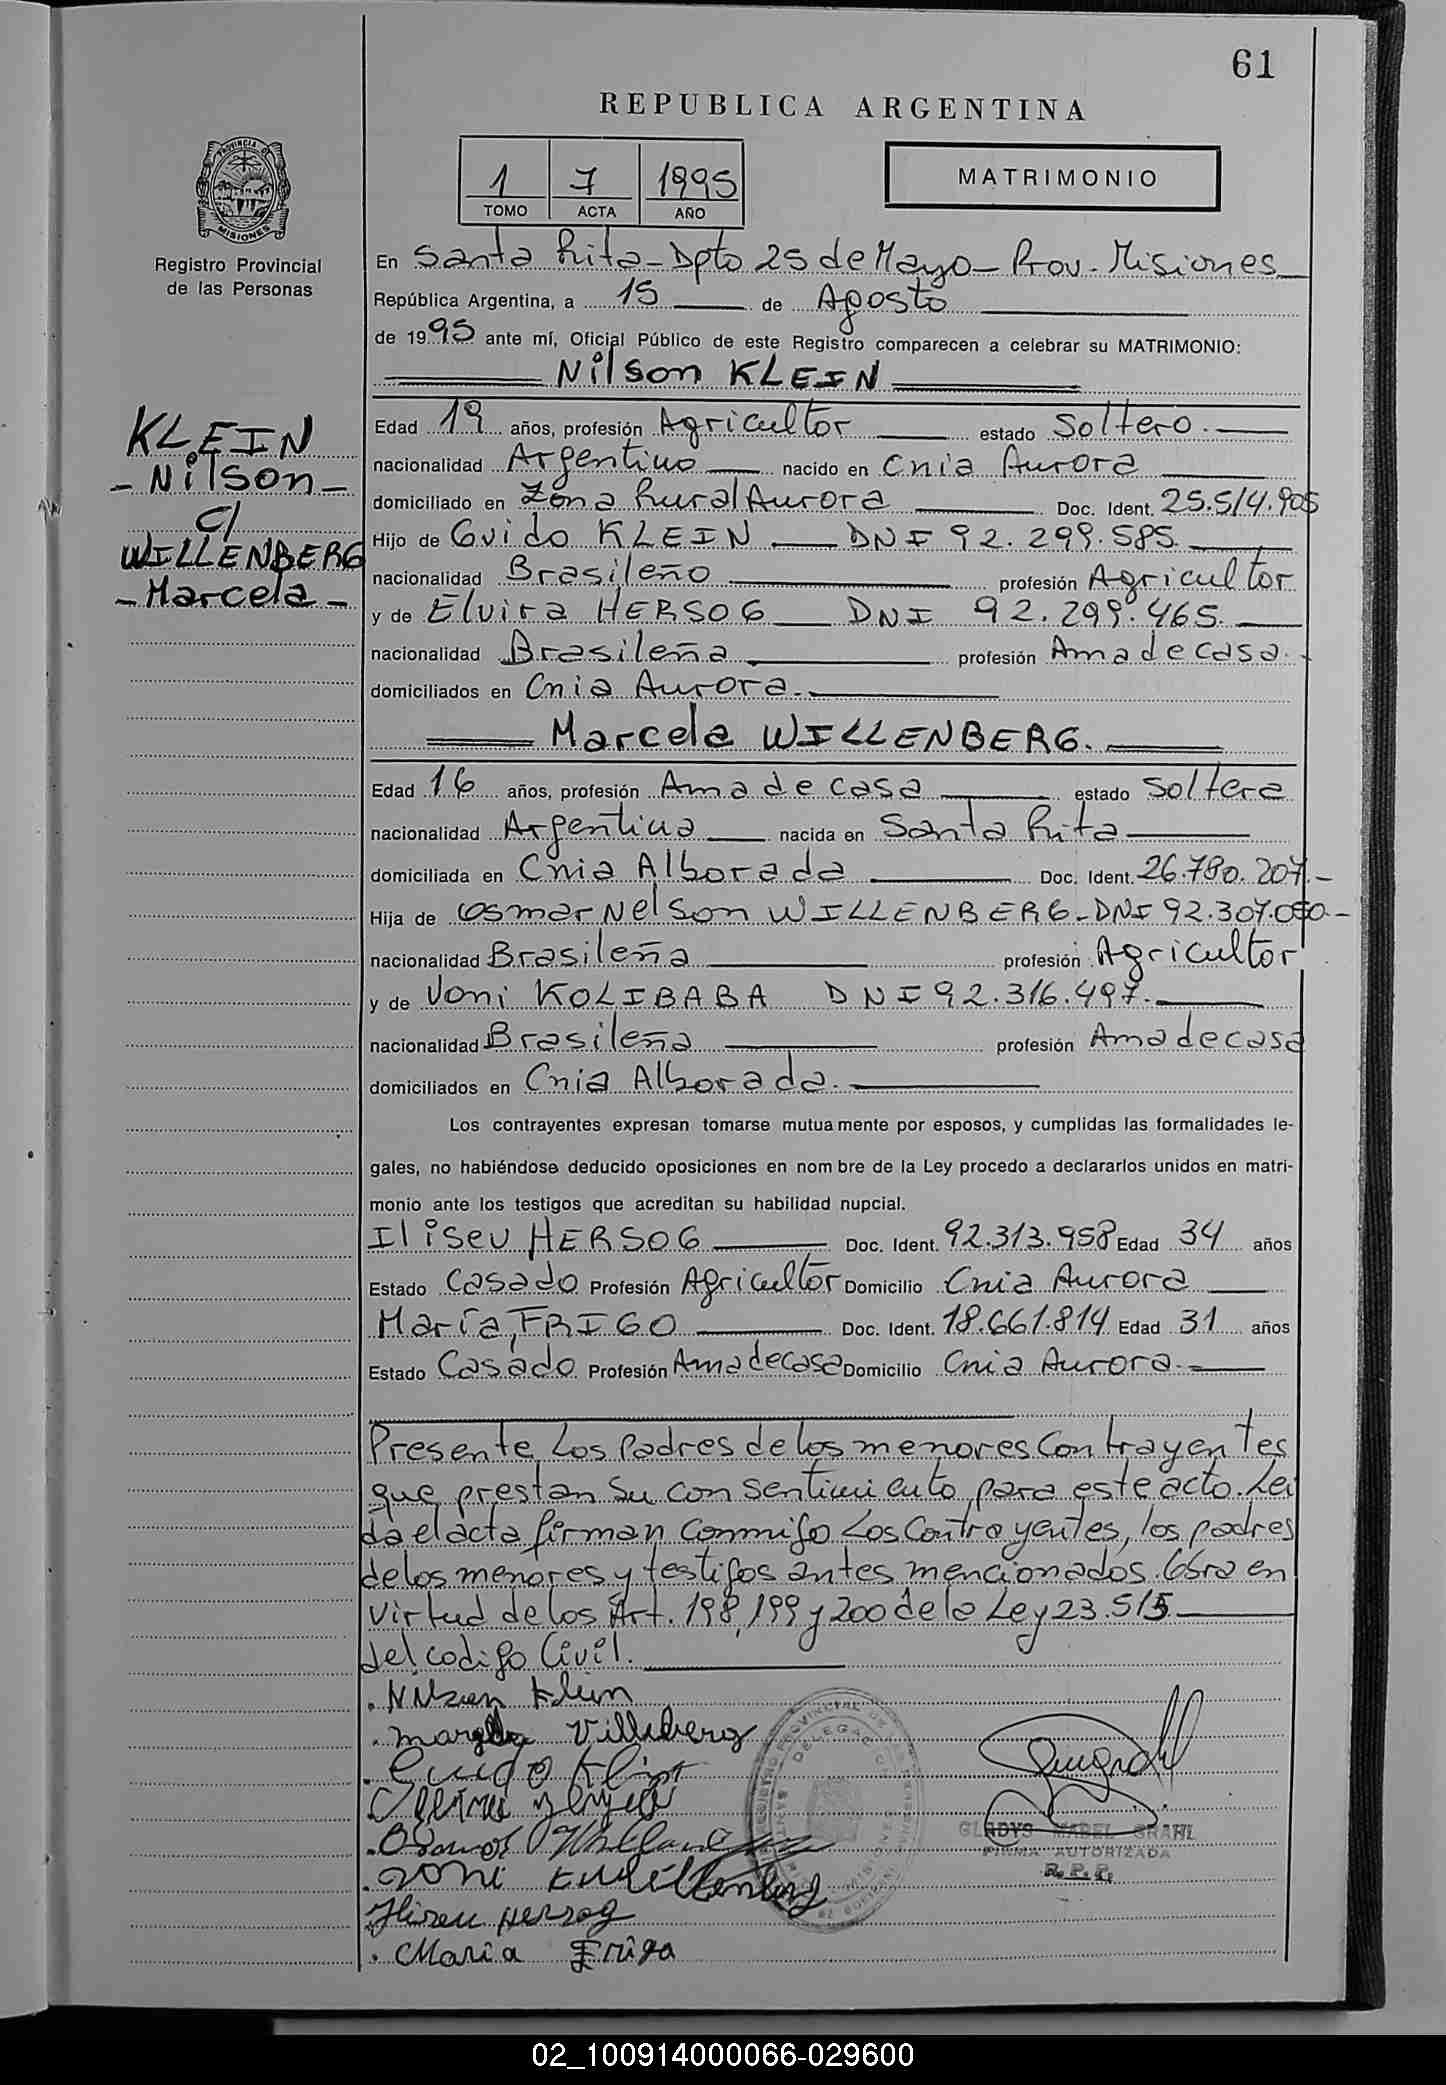 61
REPUBLICA ARGENTINA
PROVINCIA DE
MISIONES
Registro Provincial
de las Personas
1 7 1995
TOMO ACTA AÑO
MATRIMONIO
En Santa Rita - Dpto 25 de Mayo - Prov. Misiones
República Argentina, a 15 de Agosto
de 1995 ante mí, Oficial Público de este Registro comparecen a celebrar su MATRIMONIO:
Nilson KLEIN
KLEIN
- Nilson -
C/
WILLENBERG
- Marcela -
Edad 19 años, profesión Agricultor estado Soltero.
nacionalidad Argentino nacido en Cnia Aurora
domiciliado en Zona Rural Aurora Doc. Ident. 25.514.905
Hijo de Guido KLEIN DNI 92.299.585.
nacionalidad Brasileño profesión Agricultor
y de Elvira HERSOG DNI 92.299.465.
nacionalidad Brasileña profesión Ama de casa.
domiciliados en Cnia Aurora.
Marcela WILLENBERG.
Edad 16 años, profesión Ama de casa estado Soltera
nacionalidad Argentina nacida en Santa Rita
domiciliada en Cnia Alborada Doc. Ident. 26.780.207.-
Hija de Osmar Nelson WILLENBERG - DNI 92.307.050.-
nacionalidad Brasileña profesión Agricultor
y de Voni KOLIBABA DNI 92.316.497.
nacionalidad Brasileña profesión Ama de casa
domiciliados en Cnia Alborada.
Los contrayentes expresan tomarse mutuamente por esposos, y cumplidas las formalidades le-
gales, no habiéndose deducido oposiciones en nombre de la Ley procedo a declararlos unidos en matri-
monio ante los testigos que acreditan su habilidad nupcial.
Iliseu HERSOG Doc. Ident. 92.313.958 Edad 34 años
Estado Casado Profesión Agricultor Domicilio Cnia Aurora
María FRIGO Doc. Ident. 18.661.814 Edad 31 años
Estado Casado Profesión Ama de casa Domicilio Cnia Aurora.
Presente Los Padres de los menores Contrayentes
que prestan su consentimiento para este acto. Lei
da el acta firman conmigo Los Contrayentes, los padres
de los menores y testigos antes mencionados. Obra en
virtud de los Art. 198, 199 y 200 de la Ley 23.515
del codigo Civil.
Nilson Klein
Marcela Villeberg
Guido Klein
Osmar
Voni
Iliseu Herzog
GLADYS MABEL GRAHL
FIRMA AUTORIZADA
R. P. P.
Maria Friga
02_100914000066-029600